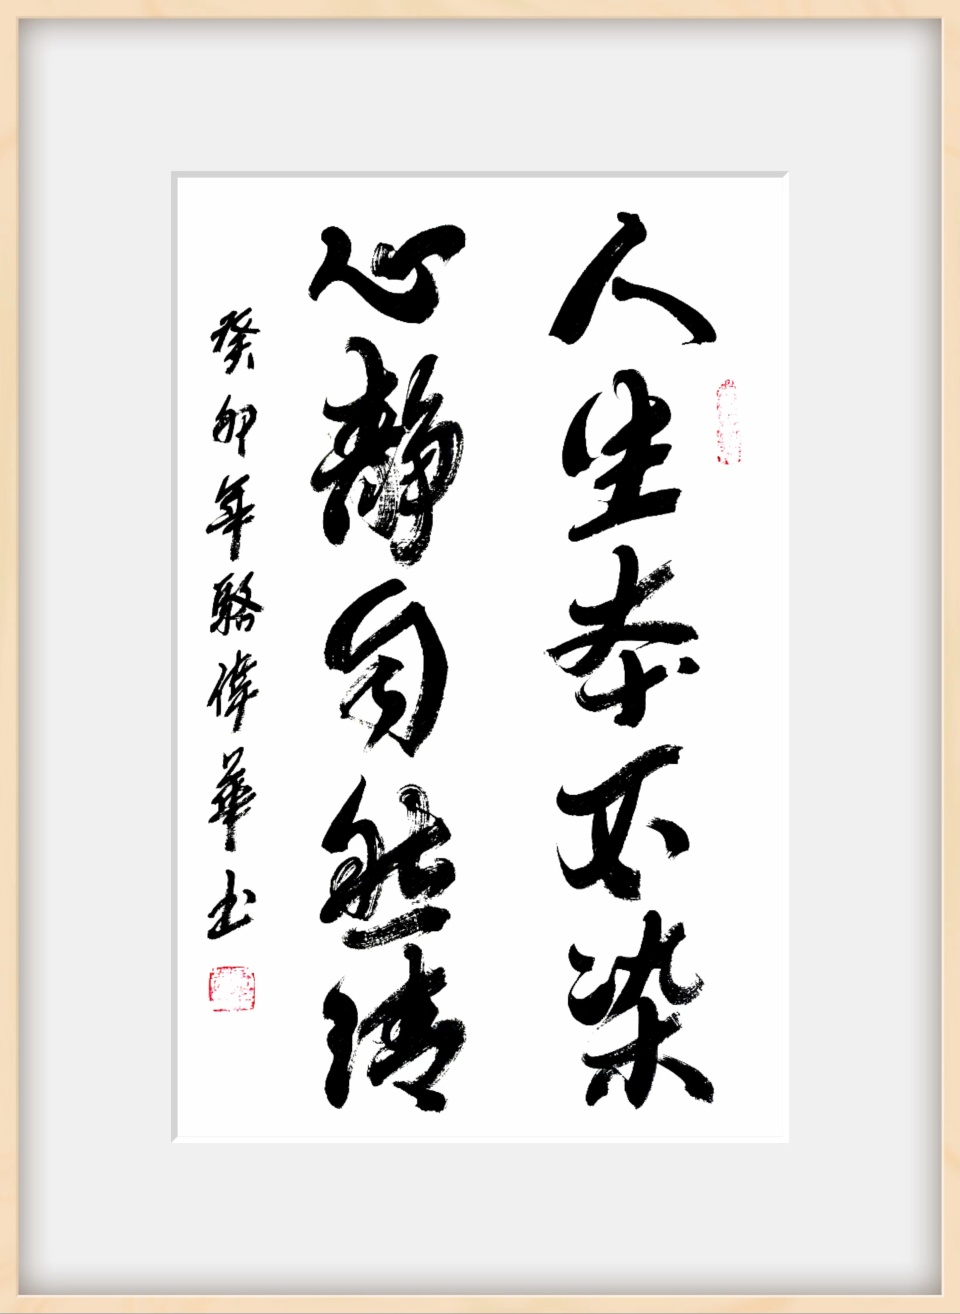 人生本不染
心静自然清
癸卯年駱偉華书